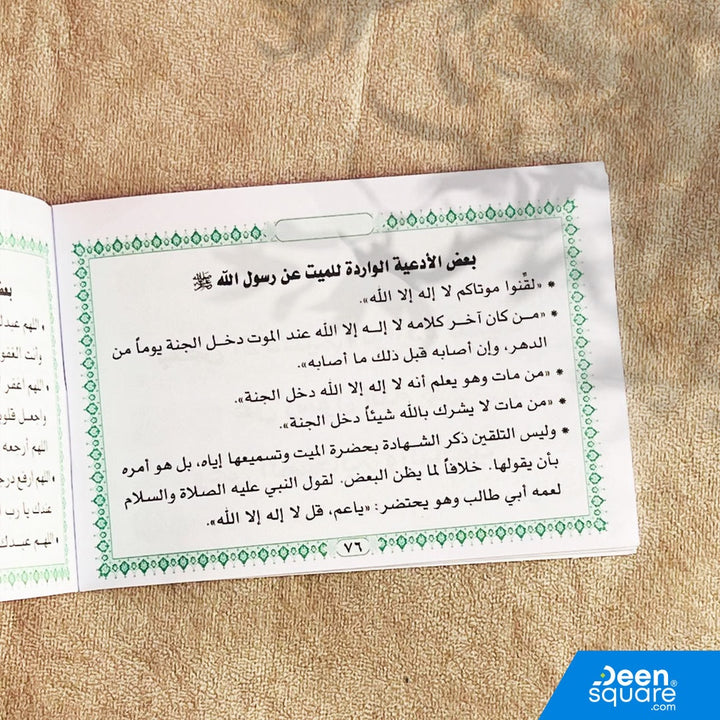 بعض الأدعية الواردة للميت عن رسول الله ﷺ
* «لقِّنوا موتاكم لا إله إلا الله».
* «مـن كان آخـر كلامه لا إلـه إلا الله عند الموت دخـل الجنة يوماً من
الدهر، وإن أصابه قبل ذلك ما أصابه».
* «من مات وهو يعلم أنه لا إله إلا الله دخل الجنة».
* «من مات لا يشرك بالله شيئاً دخل الجنة».
* وليس التلقين ذكر الشـهادة بحضرة الميت وتسميعها إياه، بل هو أمره
بأن يقولها. خلافاً لما يظن البعض. لقول النبي عليه الصلاة والسلام
لعمه أبي طالب وهو يحتضر: «ياعم، قل لا إله إلا الله».
٧٦
اللهم عبدك
وأنت الغفو
اللهم اغفر
واجعل قلو
اللهم أرحمه
اللهم ارفع درج
عندك يا رب ا
اللهـم عبـدك
Deen®
square
.com